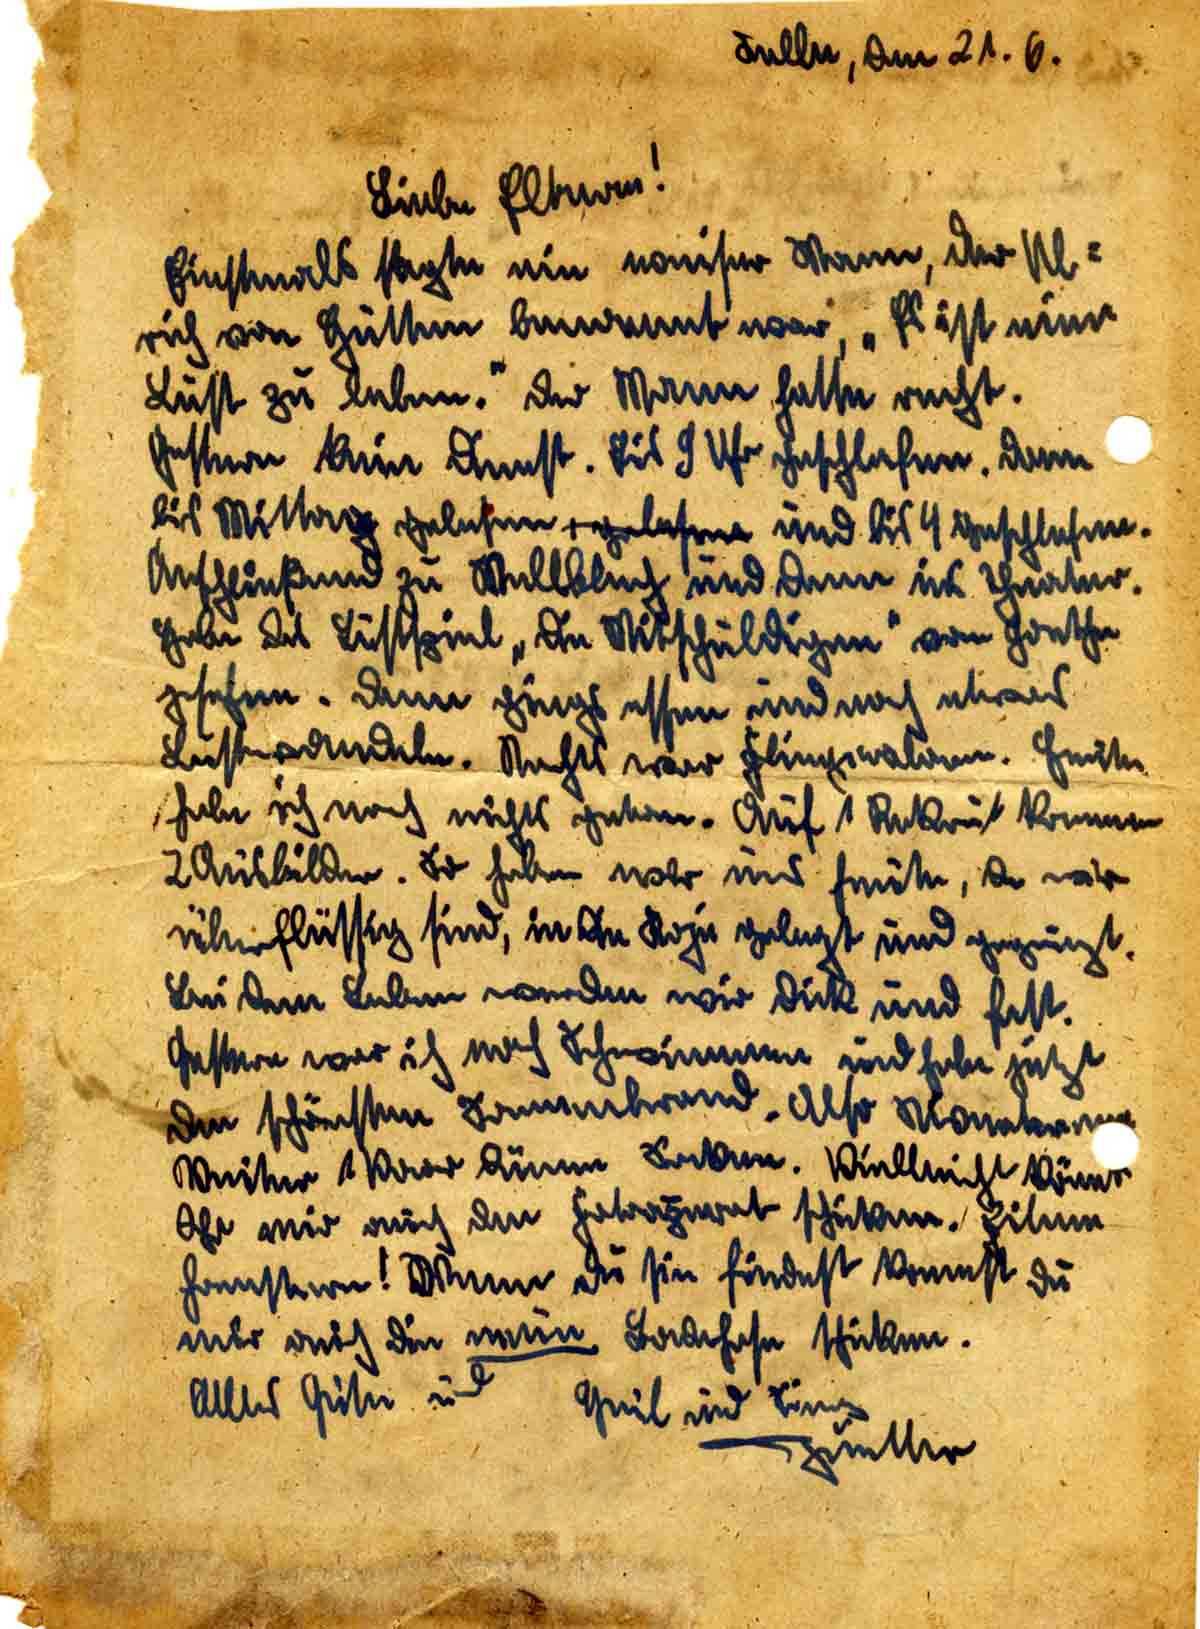 Celle, den 21. 6.
Liebe Eltern!
Einstmals sagte ein weiser Mann, der Ul=
rich von Hutten benannt war, „Es ist eine
Lust zu leben.“ Der Mann hatte recht.
Gestern kein Dienst. Bis 9 Uhr geschlafen. Dann
bis Mittag gelesen und bis 4 geschlafen.
Anschließend zu und dann ins Theater.
Habe das Lustspiel „Die Mitschuldigen“ von Goethe
gesehen. Dann gings essen und noch etwas
Lustwandeln. Nachts war Fliegeralarm. Heute
habe ich noch nichts getan. Auf 1 Rekrut kommen
2 Ausbilder. So haben wir uns heute, da wir
überflüssig sind, in die Koje gelegt und gepennt.
Bei dem Leben werden wir dick und fett.
Gestern war ich noch Schwimmen und habe jetzt
den schönsten Sonnenbrand. Also
Weiter 1 Paar dünne Socken. Vielleicht könnt
Ihr mir auch den Fotoapparat schicken. Filme
Wenn Du sie findest kannst Du
mir auch die neue Badehose schicken.
Alles Gute und Heil und Sieg
Günther